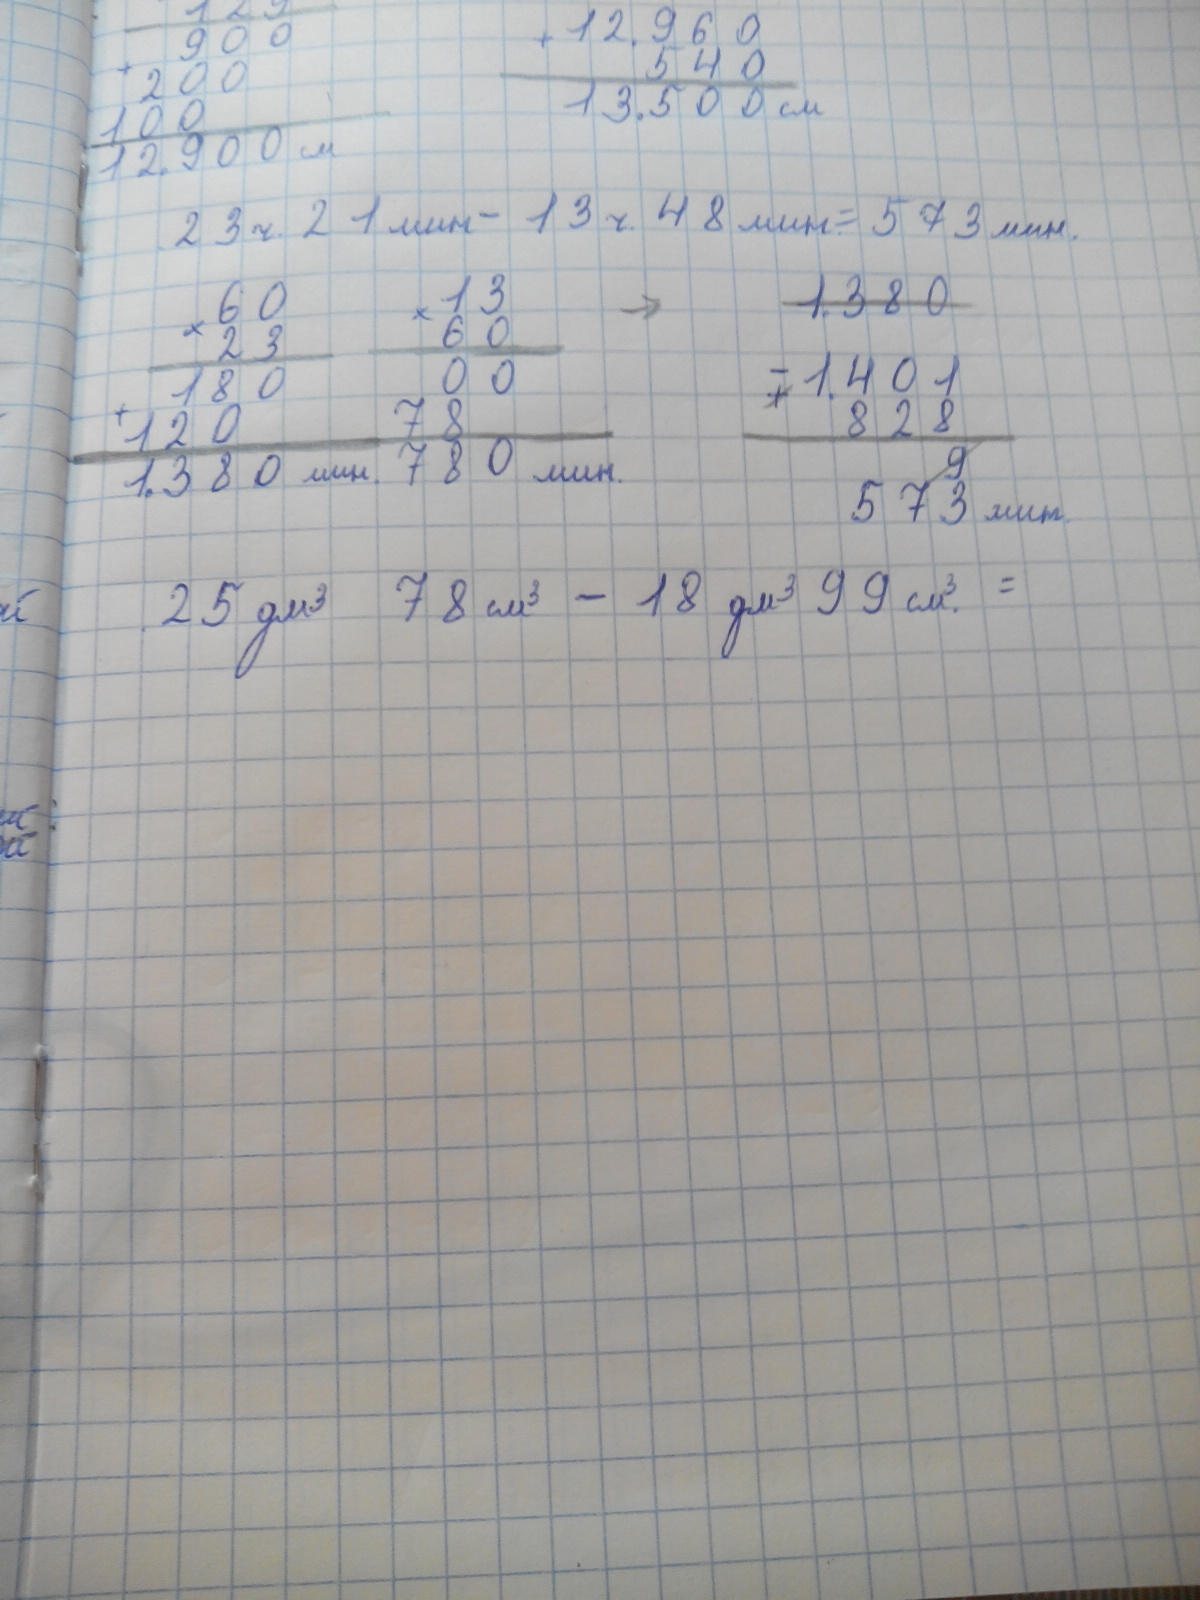 129
900
+ 200
100
12.900 см
+ 12.960
540
13.500 см
23 ч. 21 мин - 13 ч. 48 мин = 573 мин.
× 60
23
180
+ 120
1.380 мин.
× 13
60
00
78
780 мин.
→
1.380
- 1.401
828
9
573 мин.
25 дм³ 78 см³ - 18 дм³ 99 см³. =
ой